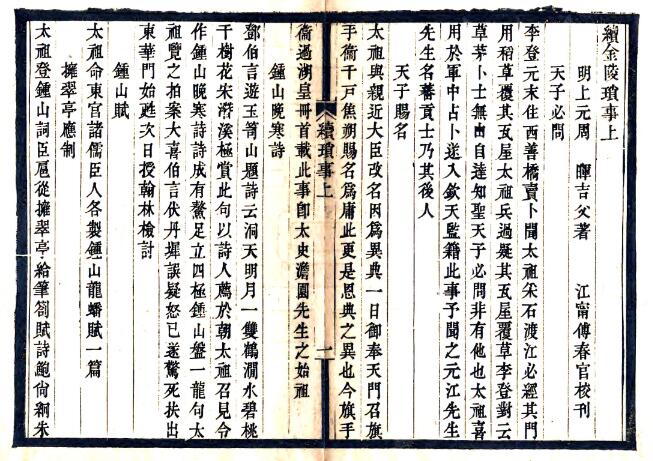 續金陵瑣事上
明上元周　暉吉父著　江甯傅春官校刊
天子必問
李登元末住西善橋賣卜聞太祖采石渡江必經其門
用稻草覆其瓦屋太祖兵過疑其瓦屋覆草李登對云
草茅卜士無由自達知聖天子必問非有他也太祖喜
用於軍中占卜送入欽天監籍此事予聞之元江先生
先生名蕃貢士乃其後人
天子賜名
太祖與親近大臣改名因爲異典一日御奉天門召旗
手衞千戸焦朔賜名爲庸此更是恩典之異也今旗手
續瑣事上
一
衞過湖皇冊首載此事卽太史澹園先生之始祖
鍾山晚寒詩
鄧伯言遊玉笥山題詩云洞天明月一雙鶴澗水碧桃
千樹花宋濳溪極賞此句以詩人薦於朝太祖召見令
作鍾山晚寒詩詩成有鰲足立四極鍾山盤一龍句太
祖覽之拍案大喜伯言伏丹墀誤疑怒已遂驚死扶出
東華門始甦次日授翰林檢討
鍾山賦
太祖命東宫諸儒臣人各製鍾山龍蟠賦一篇
擁翠亭應制
太祖登鍾山詞臣扈從擁翠亭給筆劄賦詩鮑尙絅朱